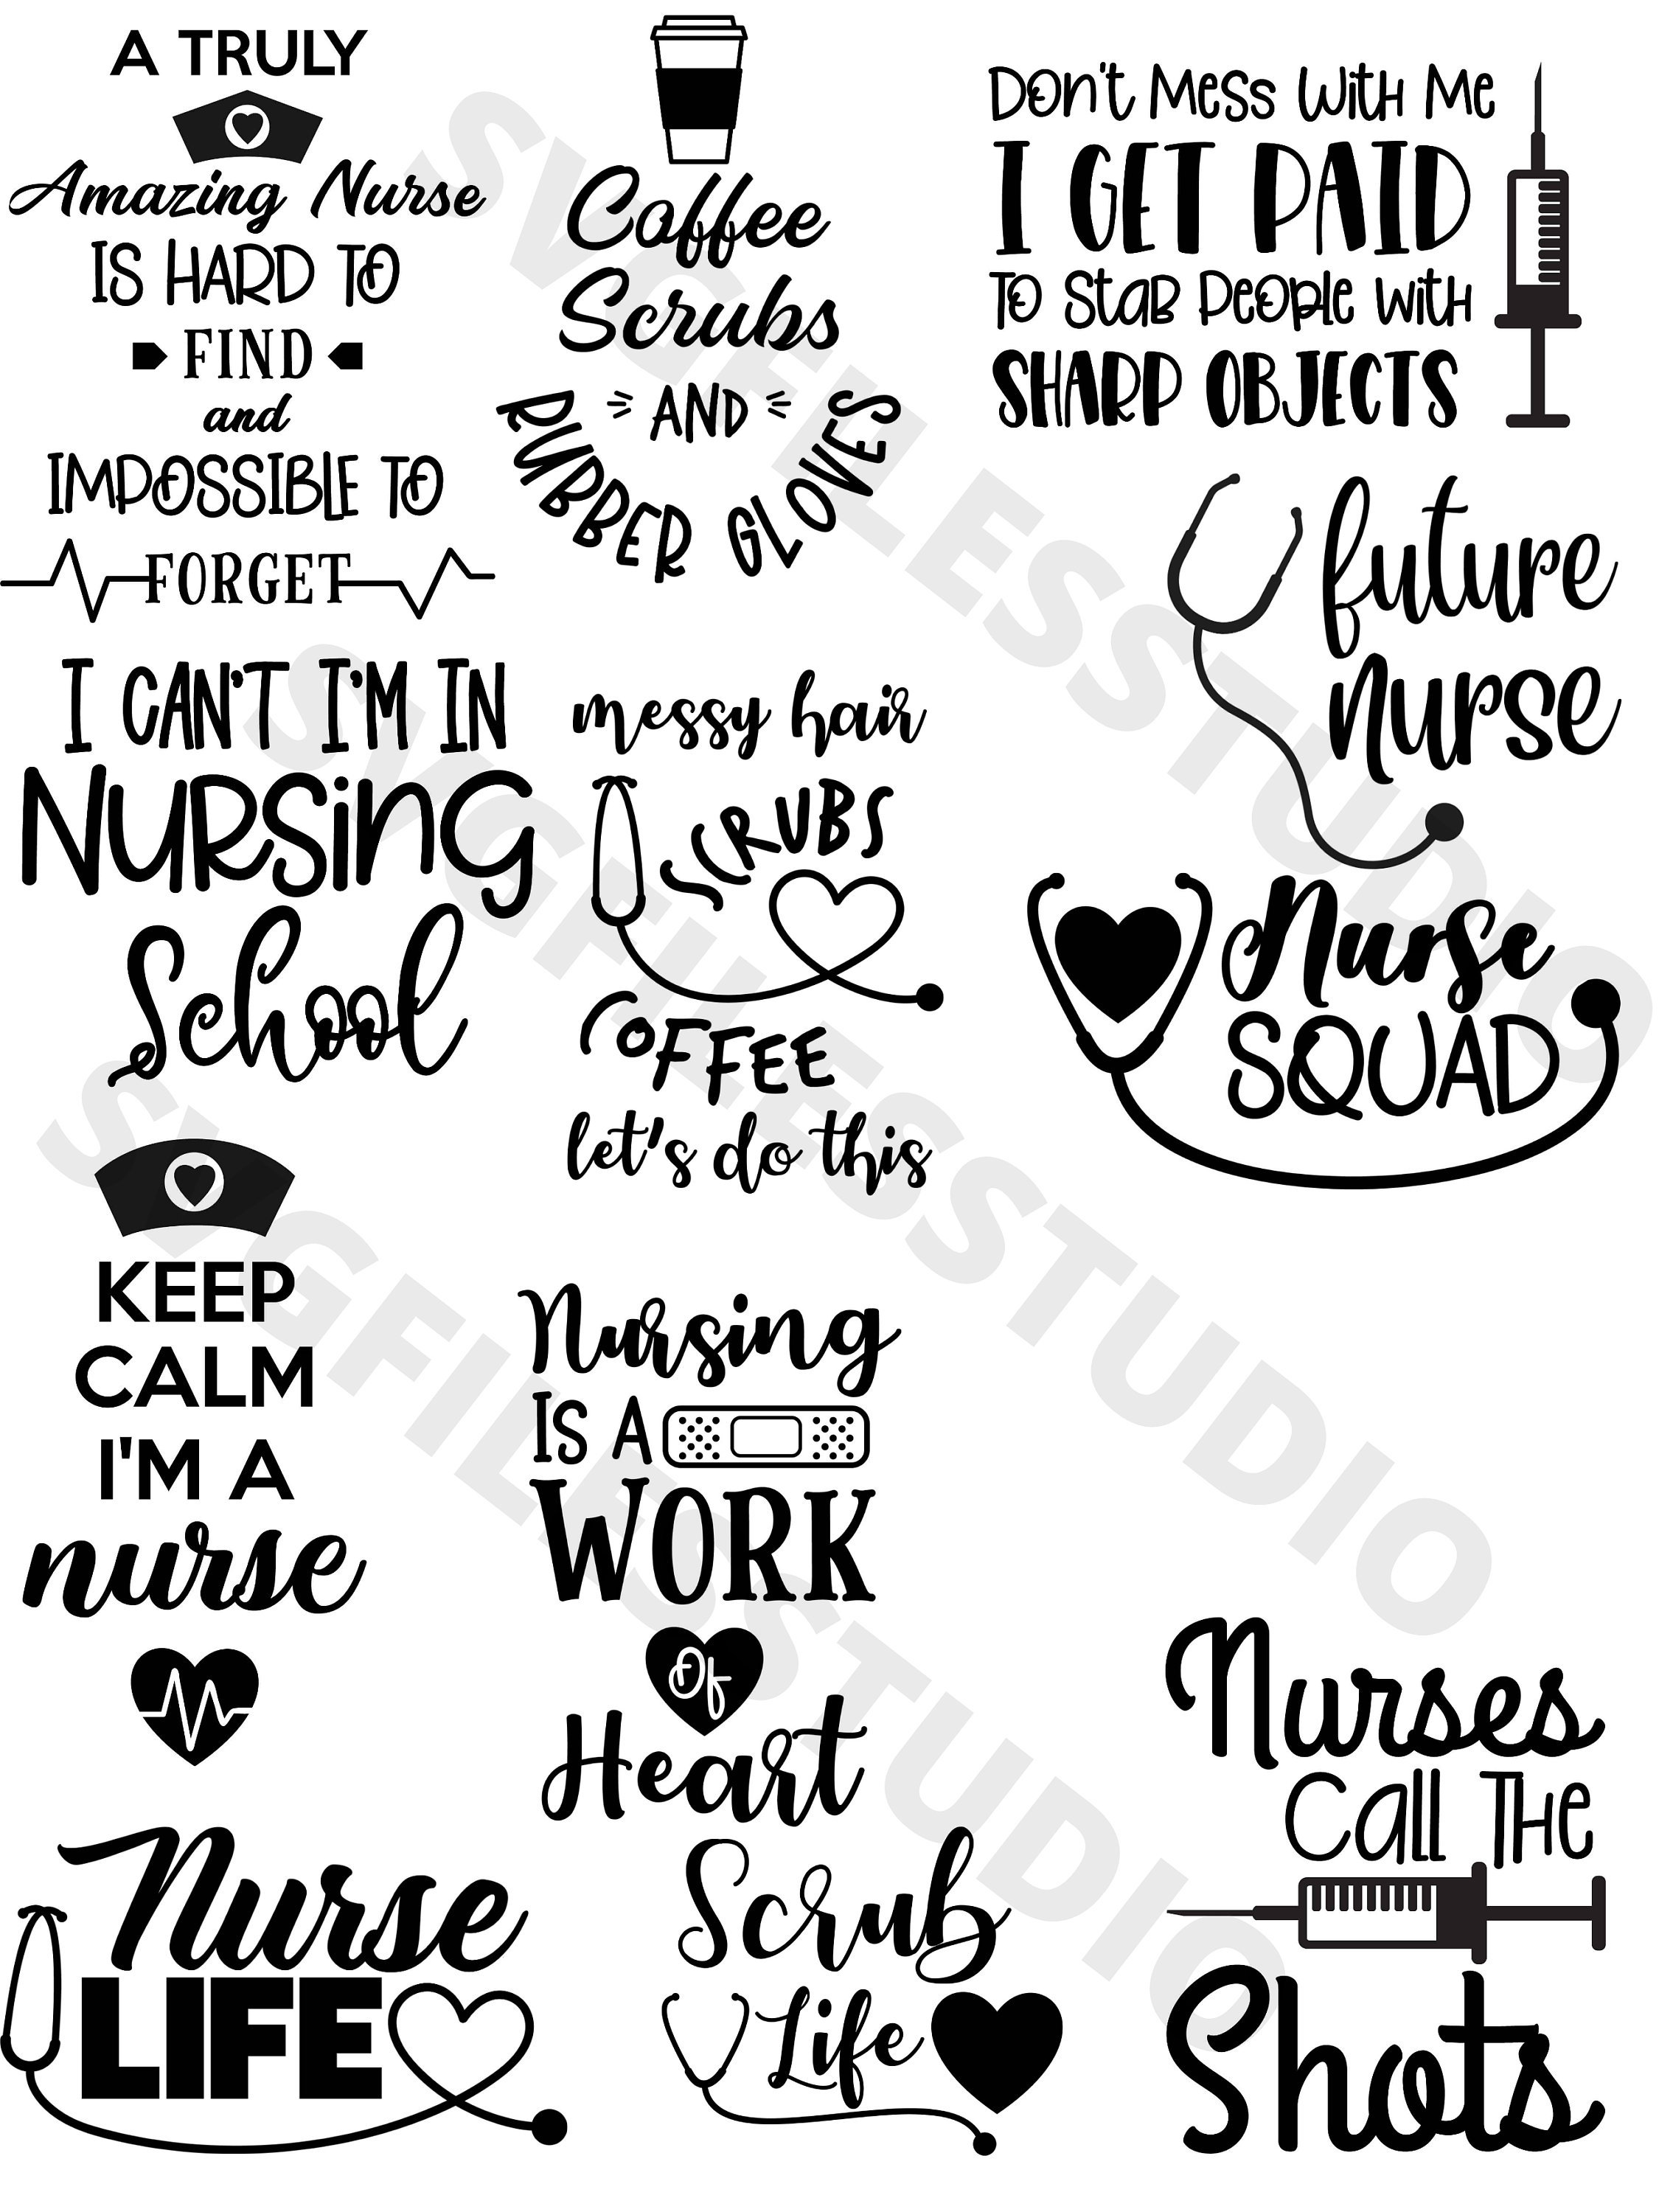 A TRULY
Amazing Nurse
IS HARD TO
FIND
and
IMPOSSIBLE TO
FORGET
Coffee
Scrubs
AND
RUBBER GLOVES
Don't Mess With Me
I GET PAID
To Stab People With
SHARP OBJECTS
future
nurse
I CAN'T I'M IN
NURSING
School
messy hair
SCRUBS
COFFEE
let's do this
Nurse
SQUAD
KEEP
CALM
I'M A
nurse
Nursing
IS A
WORK
Of
Heart
Nurses
Call The
Shots
Nurse
LIFE
Scrub
Life
SVGFILESSTUDIO
SVGFILESSTUDIO
SVGFILESSTUDIO